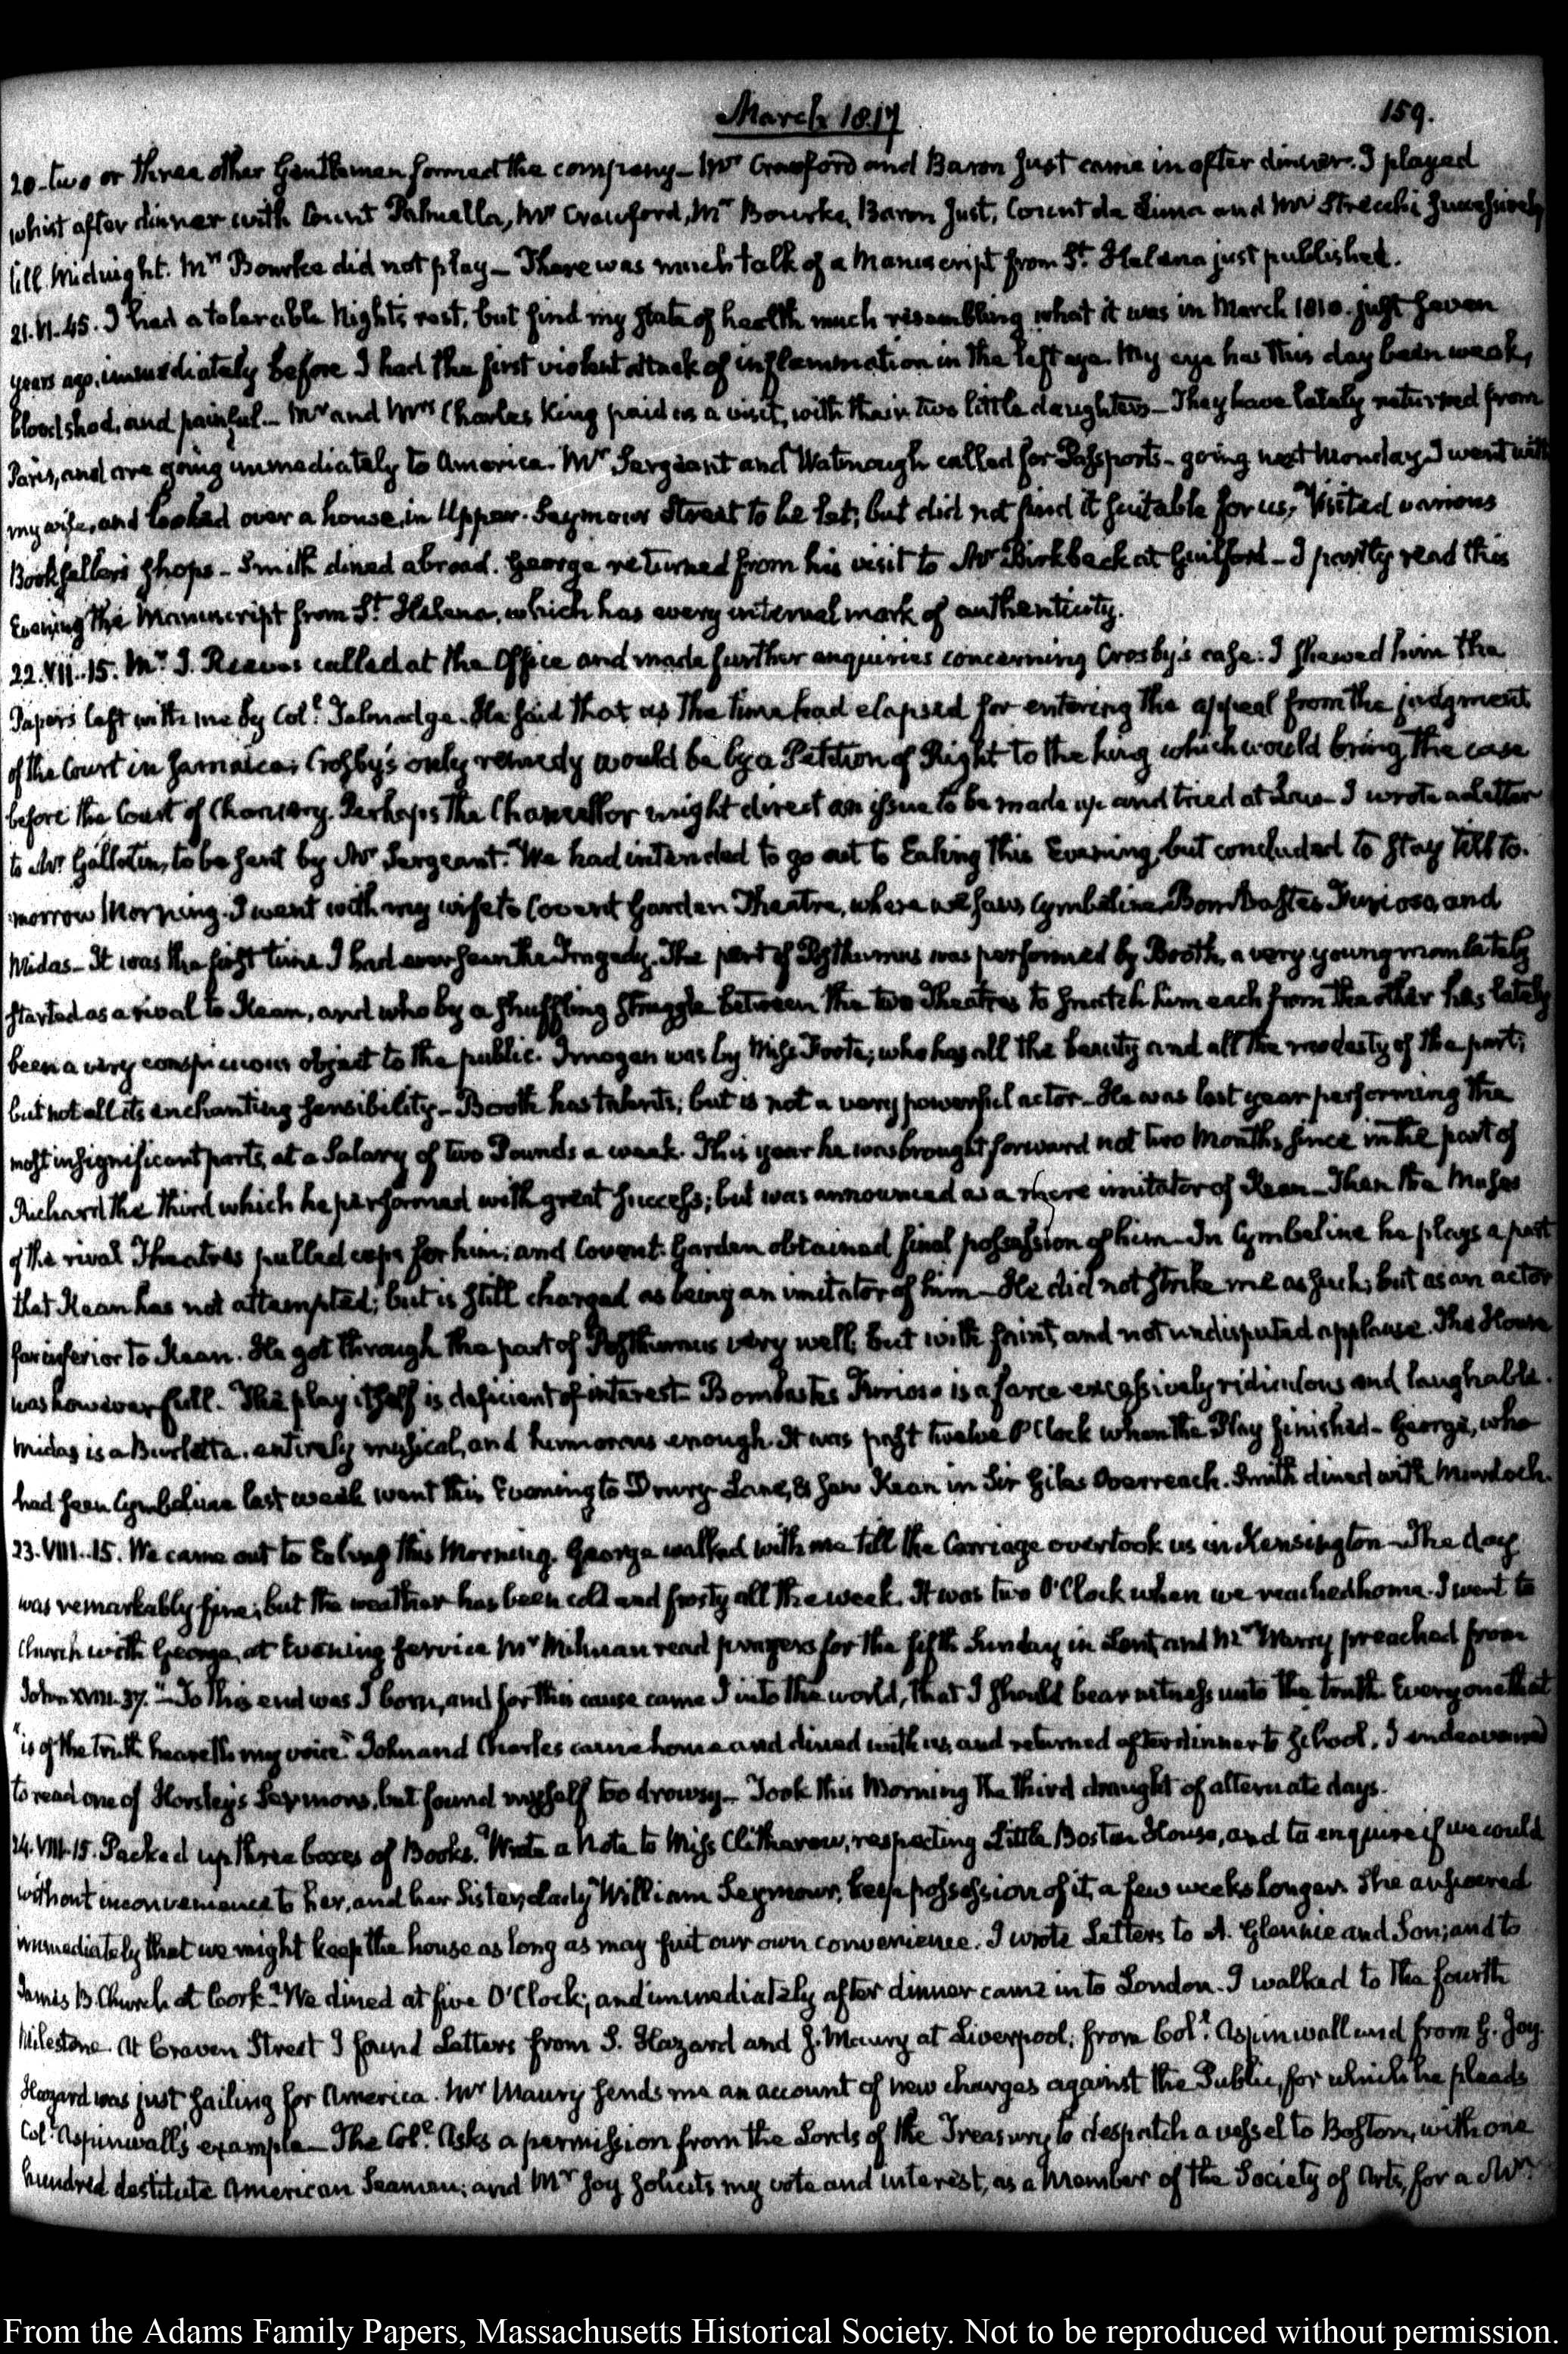 March 1817
159.
20 - two or three other Gentlemen formed the company - Mr Crawford and Baron Just came in after dinner. I played
whist after dinner with Count Palmella, Mr Crawford, Mr Bourke, Baron Just, Count da Lima and Mr Strecchi successively
till Midnight. Mrs Bourke did not play - There was much talk of a Manuscript from St. Helena just published.
21. VI. 45. I had a tolerable Night's rest, but find my state of health much resembling what it was in March 1810. just seven
years ago, immediately before I had the first violent attack of inflammation in the left eye. My eye has this day been weak,
bloodshod, and painful - Mr and Mrs Charles King paid us a visit, with their two little daughters - They have lately returned from
Paris, and are going immediately to America. Mr Sergeant and Watmough called for Passports - going next Monday. I went with
my wife, and looked over a house, in Upper-Seymour Street to be let; but did not find it suitable for us. Visited various
Booksellers shops - Smith dined abroad. George returned from his visit to Mr Birkbeck at Guilford - I partly read this
Evening the Manuscript from St. Helena, which has every internal mark of authenticity.
22. VII. 15. Mr J. Reeves called at the Office and made further enquiries concerning Crosby's case. I shewed him the
Papers left with me by Coll. Talmadge. He said that as the time had elapsed for entering the appeal from the judgment
of the Court in Jamaica, Crosby's only remedy would be by a Petition of Right to the king which would bring the case
before the Court of Chancery. Perhaps the Chancellor might direct an issue to be made up and tried at Law - I wrote a Letter
to Mr Gallatin, to be sent by Mr Sergeant. We had intended to go out to Ealing this Evening, but concluded to stay till to-
morrow Morning. I went with my wife to Covent Garden Theatre, where we saw Cymbeline, Bombastes Furioso, and
Midas - It was the first time I had ever seen the Tragedy. The part of Posthumus was performed by Booth, a very young man lately
started as a rival to Kean, and who by a shuffling struggle between the two Theatres to snatch him each from the other has lately
been a very conspicuous object to the public. Imogen was by Miss Foote; who has all the beauty and all the modesty of the part;
but not all its enchanting sensibility - Booth has talents; but is not a very powerful actor - He was last year performing the
most insignificant parts, at a Salary of two Pounds a week. This year he was brought forward not two Months since in the part of
Richard the third which he performed with great success; but was announced as a mere imitator of Kean - Then the Muses
of the rival Theatres pulled caps for him; and Covent-Garden obtained final possession of him - In Cymbeline he plays a part
that Kean has not attempted; but is still charged as being an imitator of him - He did not strike me as such; but as an actor
far inferior to Kean. He got through the part of Posthumus very well; but with faint, and not undisputed applause. The House
was however full. The play itself is deficient of interest - Bombastes Furioso is a farce excessively ridiculous and laughable.
Midas is a Burletta. entirely musical, and humorous enough. It was past twelve O'Clock when the Play finished - George, who
had seen Cymbeline last week went this Evening to Drury-Lane, & saw Kean in Sir Giles Overreach. Smith dined with Murdoch.
23. VIII. 15. We came out to Ealing this Morning. George walked with me till the Carriage overtook us in Kensington - The day
was remarkably fine; but the weather has been cold and frosty all the week. It was two O'Clock when we reached home. I went to
Church with George, at Evening service Mr Milman read prayers for the fifth Sunday in Lent, and Mr Warry preached from
John XVIII. 37. "To this end was I born, and for this cause came I into the world, that I should bear witness unto the truth. Every one that
"is of the truth heareth my voice." John and Charles came home and dined with us, and returned after dinner to School. I endeavoured
to read one of Horsley's Sermons, but found myself too drowsy - Took this Morning the third draught of alternate days.
24. VIII. 15. Packed up three boxes of Books. Wrote a Note to Miss Clitherow, respecting Little Boston House, and to enquire if we could
without inconvenience to her, and her Sister, Lady William Seymour, keep possession of it, a few weeks longer. She answered
immediately that we might keep the house as long as may suit our own convenience. I wrote Letters to A. Glennie and Son; and to
James B. Church at Cork. We dined at five O'Clock; and immediately after dinner came in to London. I walked to the fourth
Milestone. At Craven Street I found Letters from S. Hazard and J. Maury at Liverpool; from Coll. Aspinwall and from G. Joy.
Hazard was just sailing for America. Mr Maury sends me an account of new charges against the Public, for which he pleads
Coll. Aspinwall's example - The Coll. asks a permission from the Lords of the Treasury to despatch a vessel to Boston, with one
hundred destitute American Seamen; and Mr Joy solicits my vote and interest, as a Member of the Society of Arts, for a Mr
From the Adams Family Papers, Massachusetts Historical Society. Not to be reproduced without permission.